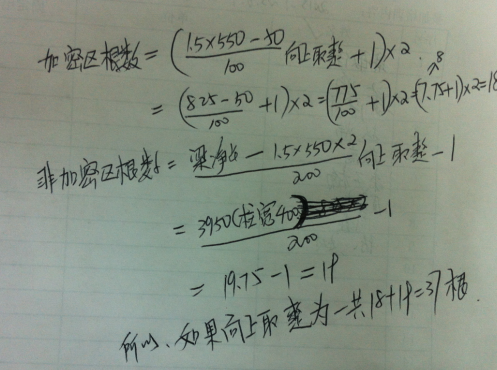 加密区根数 = (1.5×550-50/100 向上取整 + 1)×2
= (825-50/100 + 1)×2 = (775/100 + 1)×2 = (7.75+1)×2 = 18
8
非加密区根数 = 梁净长 - 1.5×550×2/200 向上取整 - 1
= 3950(柱宽400)/200 - 1
= 19.75 - 1 = 19
所以、如果向上取整为一共18+19=37根.